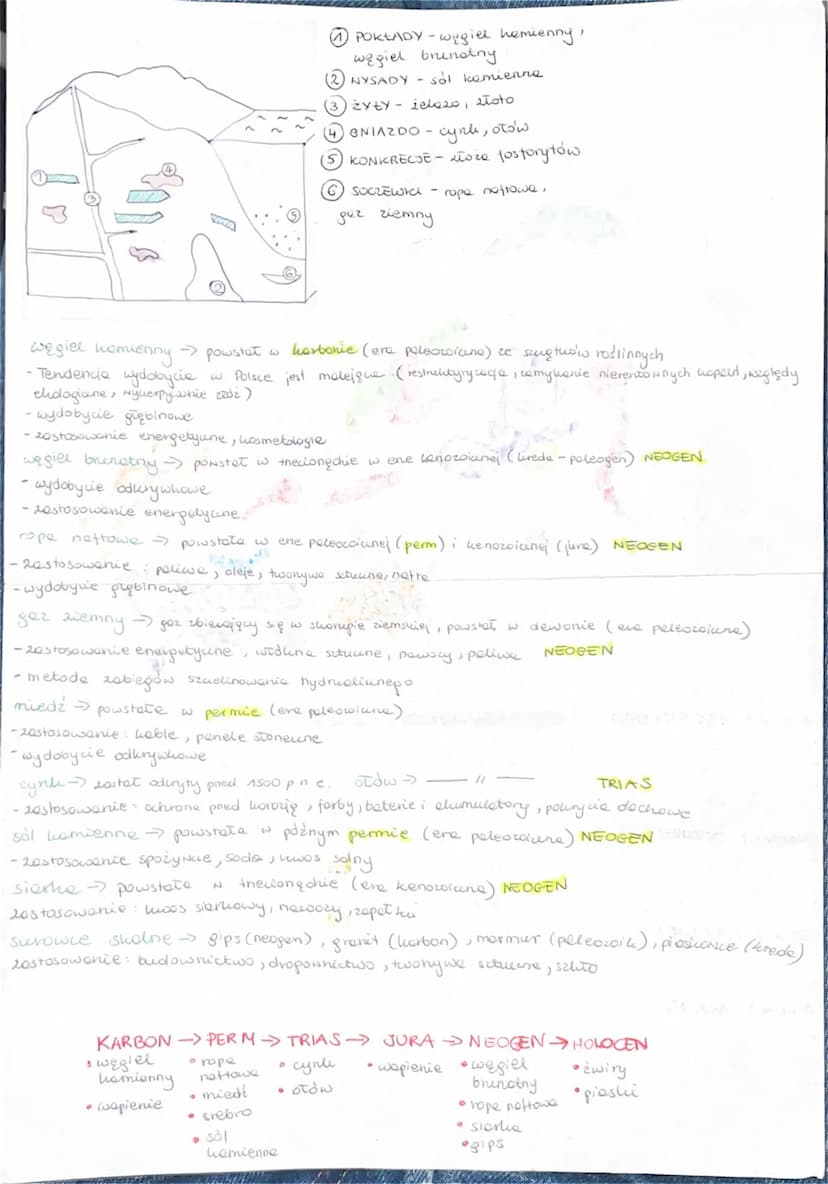 ① POKŁADY - węgiel kamienny,
węgiel brunatny
② WYSADY - sól kamienna
③ ŻYŁY - żelazo, złoto
④ GNIAZDO - cynk, ołów
⑤ KONKRECJE - złoża fosforytów
⑥ SOCZEWKI - ropa naftowa,
gaz ziemny
①
④
③
⑤
②
⑥
węgiel kamienny → powstał w karbonie (era paleozoiczna) ze szczątków roślinnych
- Tendencja wydobycia w Polsce jest malejąca (restrukturyzacja, zamykanie nierentownych kopalń, względy
ekologiczne, wyczerpywanie złóż)
- wydobycie głębinowe
- zastosowanie energetyczne, kosmetologia
węgiel brunatny → powstał w trzeciorzędzie w erze kenozoicznej (kreda - paleogen) NEOGEN
- wydobycie odkrywkowe
- zastosowanie energetyczne
ropa naftowa → powstała w erze paleozoicznej (perm) i kenozoicznej (jura) NEOGEN
- zastosowanie: paliwa, oleje, tworzywa sztuczne, nafta
- wydobycie głębinowe
gaz ziemny → gaz zbierający się w skorupie ziemskiej, powstał w dewonie (era paleozoiczna)
- zastosowanie energetyczne, włókna sztuczne, nawozy, paliwa NEOGEN
- metoda zabiegów szczelinowania hydraulicznego
miedź → powstała w permie (era paleozoiczna)
- zastosowanie: kable, panele słoneczne
- wydobycie odkrywkowe
cynk → został odkryty przed 1500 p n e. ołów → — " — TRIAS
- zastosowanie: ochrona przed korozją, farby, baterie i akumulatory, pokrycia dachowe
sól kamienna → powstała w późnym permie (era paleozoiczna) NEOGEN
- zastosowanie spożywcze, soda, kwas solny
siarka → powstała w trzeciorzędzie (era kenozoiczna) NEOGEN
zastosowanie: kwas siarkowy, nawozy, zapałki
surowce skalne → gips (neogen), granit (karbon), marmur (paleozoik), piaskowce (kreda)
zastosowanie: budownictwo, drogownictwo, tworzywa sztuczne, szkło
KARBON → PERM → TRIAS → JURA → NEOGEN → HOLOCEN
• węgiel kamienny
• wapienie
• ropa naftowa
• miedź
• srebro
• sól kamienna
• cynk
• ołów
• wapienie
• węgiel brunatny
• ropa naftowa
• siarka
• gips
• żwiry
• piaski